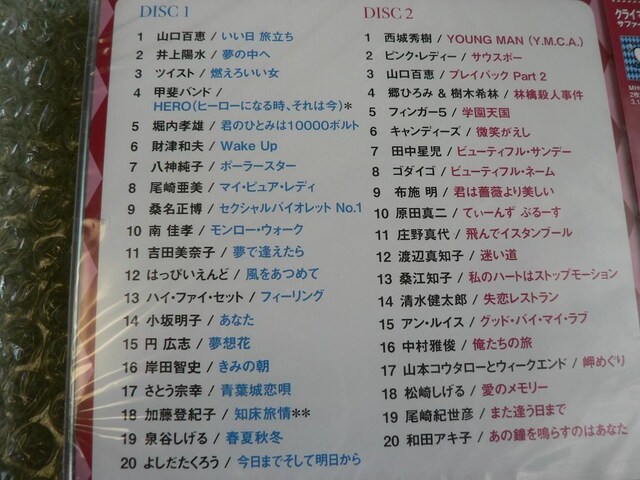 DISC 1
1 山口百恵 / いい日 旅立ち
2 井上陽水 / 夢の中へ
3 ツイスト / 燃えろいい女
4 甲斐バンド /
HERO(ヒーローになる時、それは今)*
5 堀内孝雄 / 君のひとみは10000ボルト
6 財津和夫 / Wake Up
7 八神純子 / ポーラースター
8 尾崎亜美 / マイ・ピュア・レディ
9 桑名正博 / セクシャルバイオレット No.1
10 南 佳孝 / モンロー・ウォーク
11 吉田美奈子 / 夢で逢えたら
12 はっぴいえんど / 風をあつめて
13 ハイ・ファイ・セット / フィーリング
14 小坂明子 / あなた
15 円 広志 / 夢想花
16 岸田智史 / きみの朝
17 さとう宗幸 / 青葉城恋唄
18 加藤登紀子 / 知床旅情**
19 泉谷しげる / 春夏秋冬
20 よしだたくろう / 今日までそして明日から
DISC 2
1 西城秀樹 / YOUNG MAN (Y.M.C.A.)
2 ピンク・レディー / サウスポー
3 山口百恵 / プレイバック Part 2
4 郷ひろみ & 樹木希林 / 林檎殺人事件
5 フィンガー5 / 学園天国
6 キャンディーズ / 微笑がえし
7 田中星児 / ビューティフル・サンデー
8 ゴダイゴ / ビューティフル・ネーム
9 布施 明 / 君は薔薇より美しい
10 原田真二 / てぃーんず ぶるーす
11 庄野真代 / 飛んでイスタンブール
12 渡辺真知子 / 迷い道
13 桑江知子 / 私のハートはストップモーション
14 清水健太郎 / 失恋レストラン
15 アン・ルイス / グッド・バイ・マイ・ラブ
16 中村雅俊 / 俺たちの旅
17 山本コウタローとウィークエンド / 岬めぐり
18 松崎しげる / 愛のメモリー
19 尾崎紀世彦 / また逢う日まで
20 和田アキ子 / あの鐘を鳴らすのはあなた